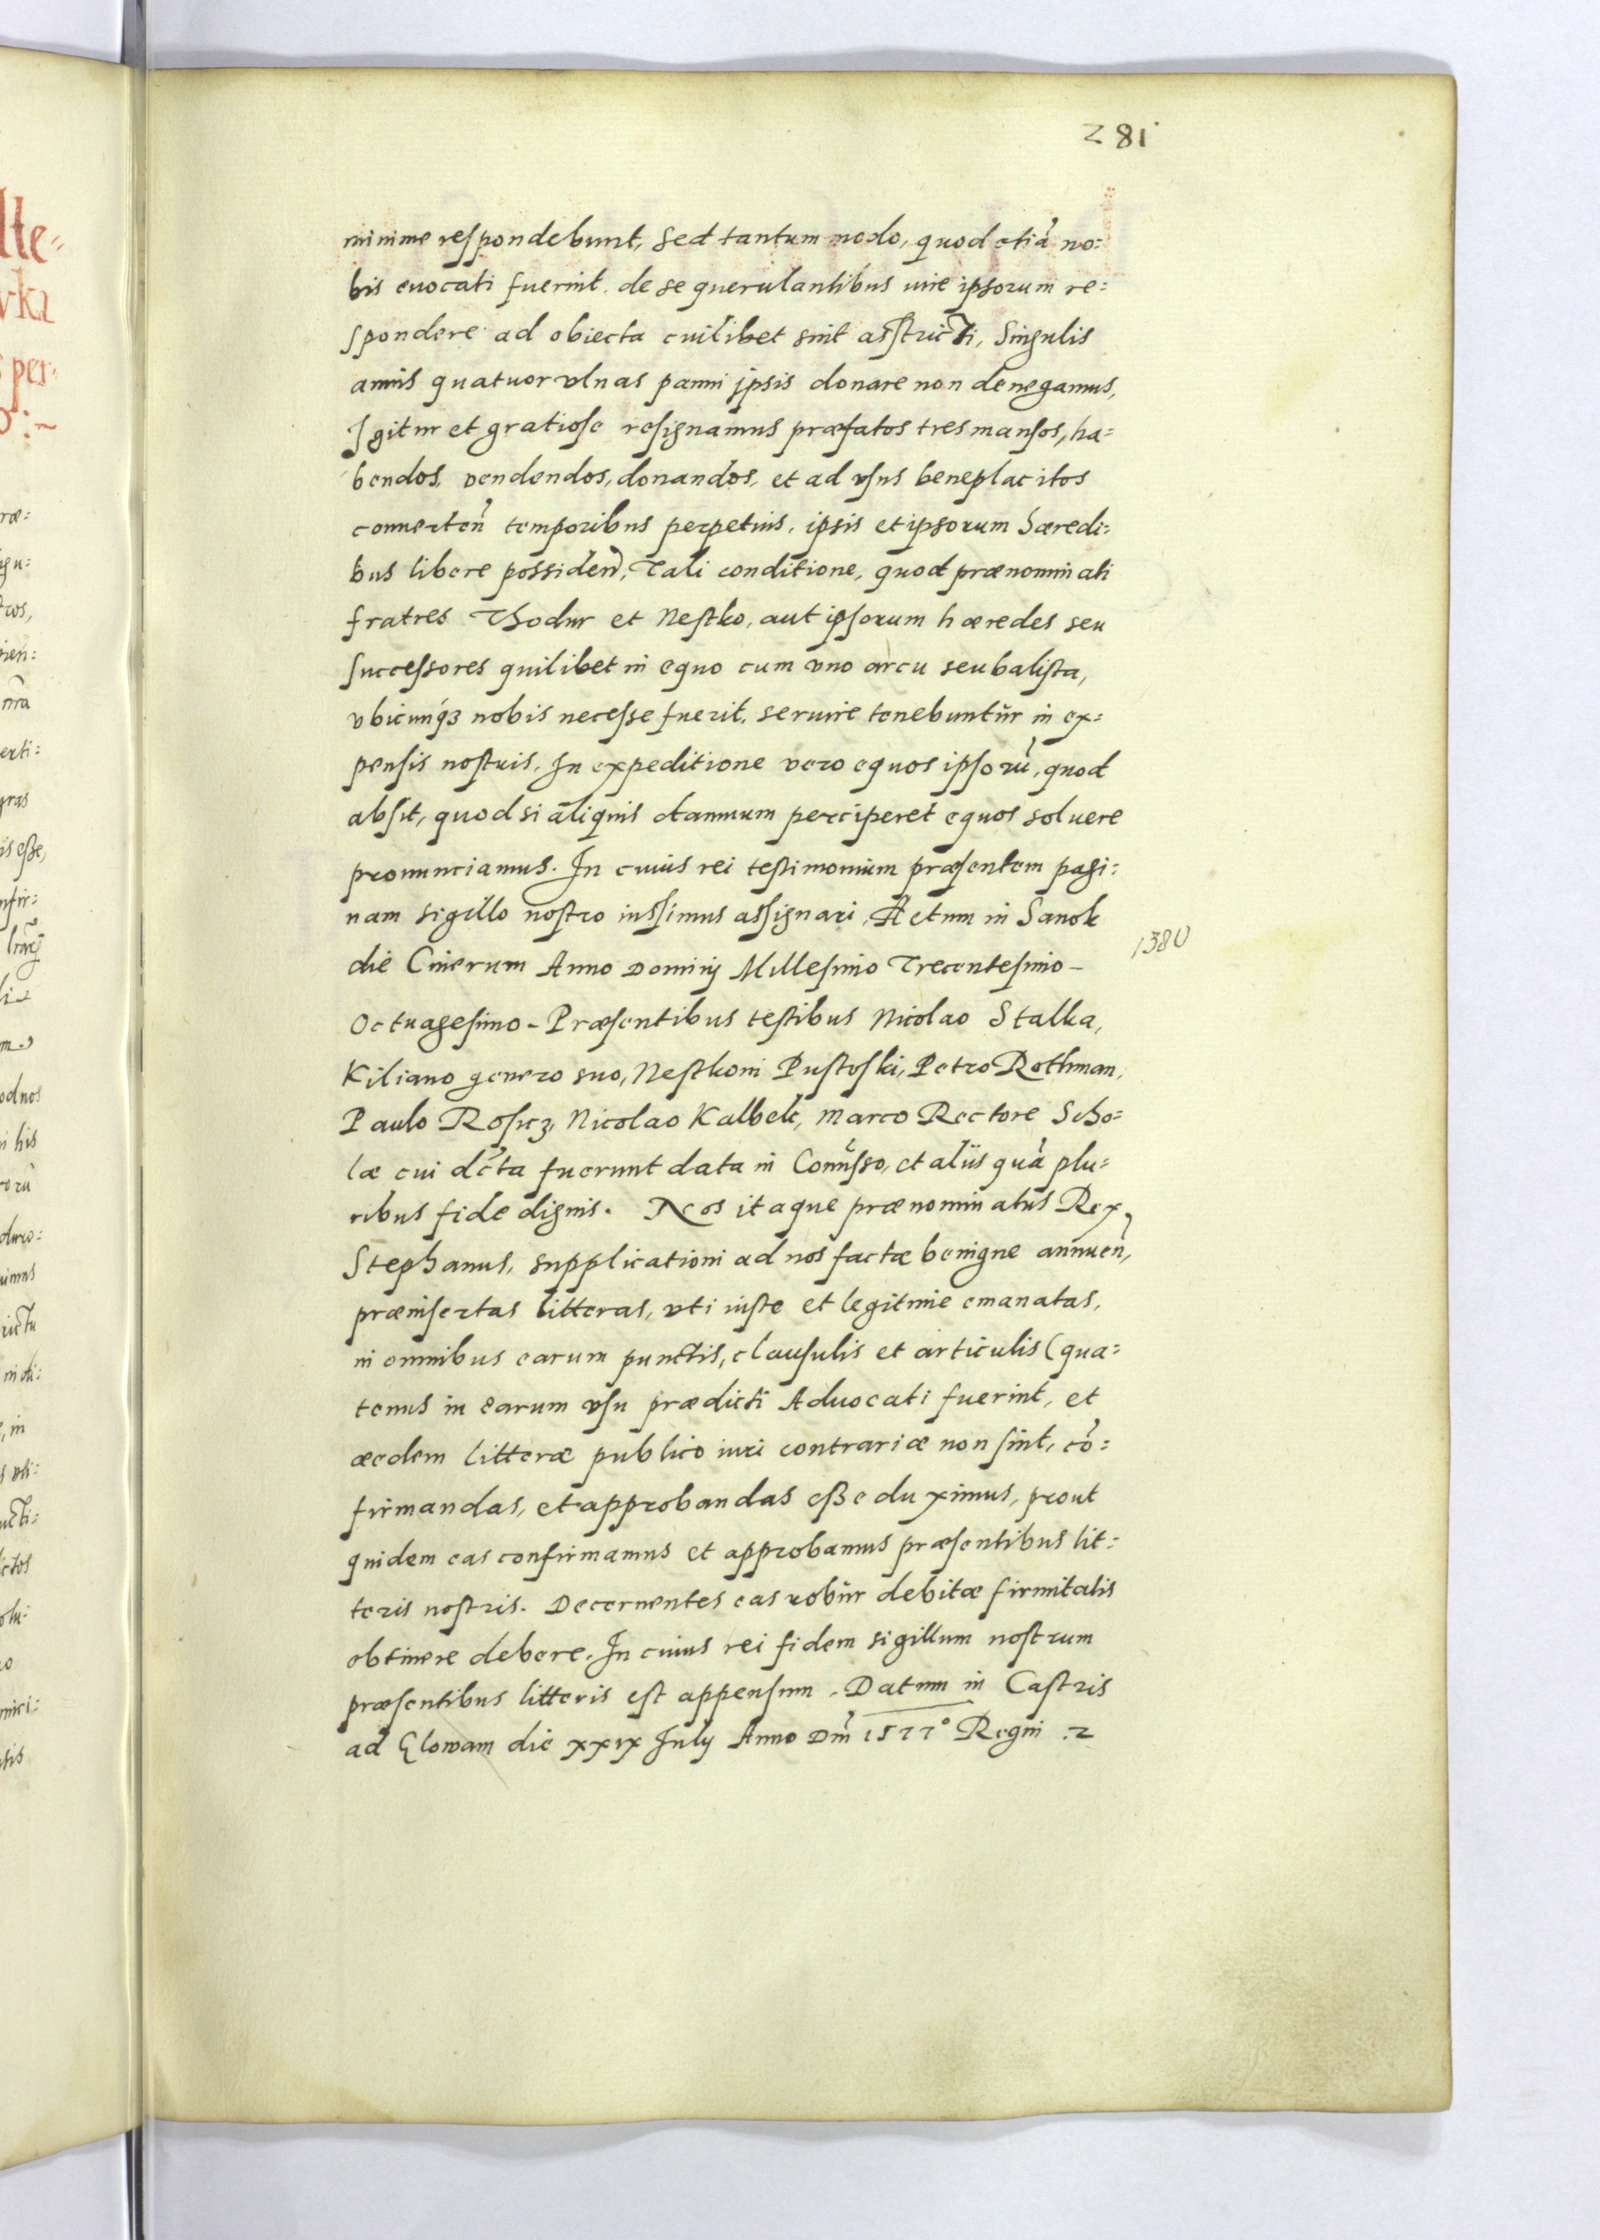 281
minime respondebunt, sed tantum modo, quod etiā no:
bis euocati fuerint de se querulantibus iure ipsorum re:
spondere ad obiecta cuilibet sint astricti, Singulis
annis quatuor vlnas panni ipsis donare non denegamus,
Igitur et gratiose resignamus præfatos tres mansos, ha:
bendos, vendendos, donandos, et ad vsus beneplacitos
conuerteñ temporibus perpetuis, ipsis et ipsorum hæredi:
bus libere possideñ, Tali conditione, quod prænominati
fratres Thodur et Nestko, aut ipsorum hæredes seu
successores quilibet in equo cum vno arcu seu balista,
vbicunqꝫ nobis necesse fuerit, seruire tenebuntur in ex:
pensis nostris. In expeditione vero equos ipsorū, quod
absit, quod si aliquis damnum perciperet equos soluere
pronunciamus. In cuius rei testimonium præsentem pagi:
nam sigillo nostro iussimus assignari. Actum in Sanok
die Cinerum Anno Dominij Millesimo Trecentesimo
1380
Octuagesimo. Præsentibus testibus Nicolao Stalka,
Kiliano genero suo, Nestkoni Pustoski, Petro Rothman,
Paulo Rosicz, Nicolao Kalbek, Marco Rectore Scho:
læ cui dcta fuerunt data in Com̃isso, et aliis quā plu:
ribus fide dignis. Nos itaque prænominatus Rex
Stephanus, supplicationi ad nos factæ benigne annueñ,
præinsertas litteras, vti iuste et legitime emanatas,
in omnibus earum punctis, clausulis et articulis (qua:
tenus in earum vsu prædicti Aduocati fuerint, et
æedem litteræ publico iuri contrariæ non sint, cō:
firmandas, et approbandas esse duximus, prout
quidem eas confirmamus et approbamus præsentibus lit:
teris nostris. Decernentes eas robur debitæ firmitatis
obtinere debere. In cuius rei fidem sigillum nostrum
præsentibus litteris est appensum. Datum in Castris
ad Glowam die xxix July Anno Dñi 1577° Regni 2